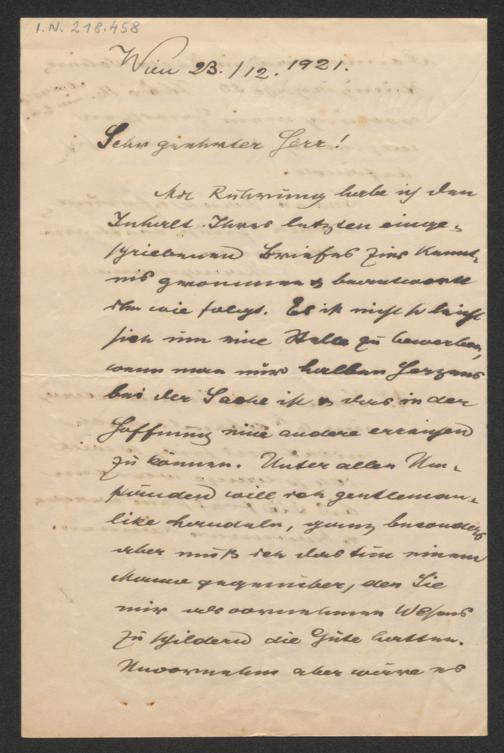 I.N. 218.458
Wien 23./12. 1921.
Sehr geehrter Herr!
Mit Rührung habe ich den
Inhalt Ihres letzten einge-
schriebenen Briefes zur Kennt-
nis genommen & beantworte
ihn wie folgt. Es ist nicht so leicht
sich um eine Stelle zu bewerben,
wenn man nur halben Herzens
bei der Sache ist & das in der
Hoffnung eine andere erringen
zu können. Unter allen Um-
ständen will ich gentleman-
like handeln, ganz besonders
aber muß ich das tun einem
Manne gegenüber, den Sie
mir als vornehmen Wesens
zu schildern die Güte hatten.
Unvornehm aber wäre es